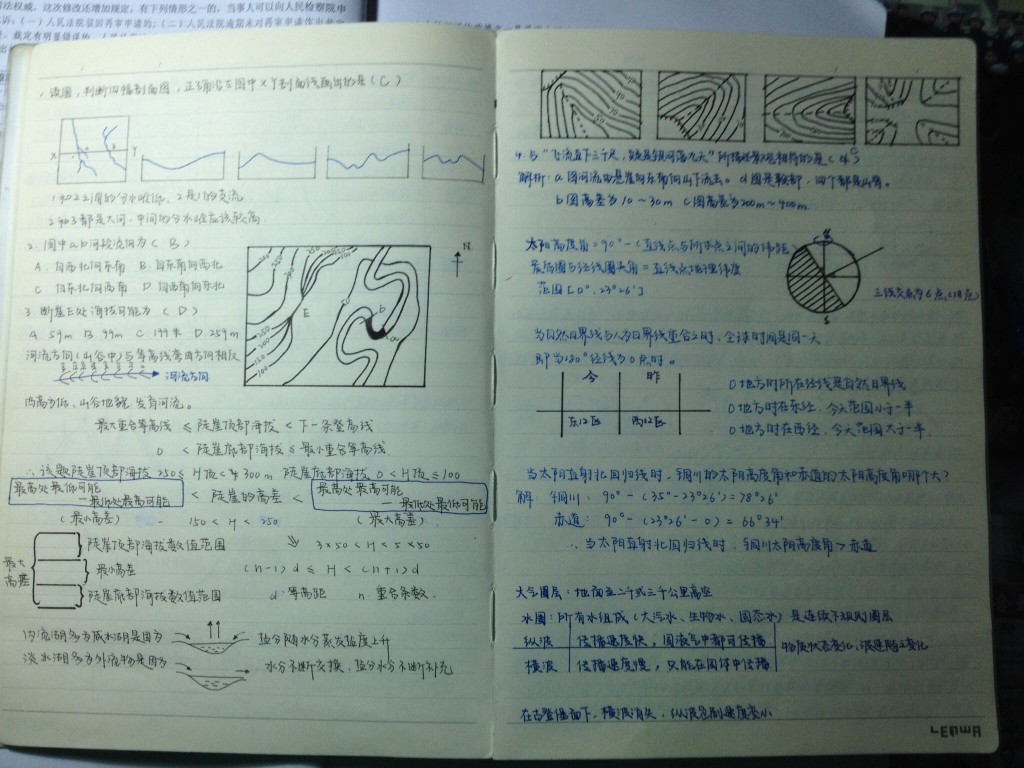 司法权威,这次修改还增加规定,有下列情形之一的,当事人可以向人民检察院申
诉:(一)人民法院驳回再审申请的;(二)人民法院逾期未对再审申请作出裁定
裁定有明显错误的
1. 读图,判断四幅剖面图,正确沿左图中XY剖面线画出的是(C)
X Y
1和2之间的分水岭低,2是1的支流
2和3都是大河,中间的分水岭应该较高
2. 图中a b河段流向为(B)
A. 自西北向东南 B. 自东南向西北
C 自东北向西南 D 自西南向东北
3 断崖E处海拔可能为(D)
A 59m B 99m C 199米 D 259m
河流方向(山谷中)与等高线弯曲方向相反
河流方向
四高为低,山谷地貌,发育河流。
最大重合等高线 ≤ 陡崖顶部海拔 < 下一条登高线
0 < 陡崖底部海拔 ≤ 最小重合等高线
∴该题陡崖顶部海拔 250≤H顶<300m 陡崖底部海拔 0<H底≤100
最高处最低可能
—最低处最高可能
< 陡崖的高差 <
最高处最高可能
—最低处最低可能
(最小高差) - 150<H<250 (最大高差)
最大高差
陡崖顶部海拔数值范围 ⇒ 3×50<H<5×50
最小高差 (n-1)d ≤ H < (n+1)d
陡崖底部海拔数值范围 d:等高距 n 重合条数
内流湖多为咸水湖是因为 盐分随水分蒸发盐度上升
淡水湖多为外流物是因为 水分不断交换,盐分水分不断补充
N
E
b
a
350
300
250
200
150
100
4.与“飞流直下三千尺,疑是银河落九天”所描述景观相符的是(C)
解析:a图河流由悬崖向东南向山下流去。d图是鞍部,四个都是山脊。
b图高差为10~30m c图高差为200m~400m.
太阳高度角=90°-(直线点与所求点之间的纬距)
晨昏圈与经线圈夹角=直线点地理纬度
范围[0°,23°26′]
三线交点为6点(18点)
当自然日界线与人为日界线重合之时,全球时间是同一天
即当180°经线为0点时。
今 昨
东12区 西12区
0地方时所在经线是自然日界线
0地方时在东经,今天范围小于一半
0地方时在西经,今天范围大于一半.
当太阳直射北回归线时,铜川的太阳高度角和赤道的太阳高度角哪个大?
解 铜川: 90°-(35°-23°26′)=78°26′
赤道: 90°-(23°26′-0)=66°34′
∴当太阳直射北回归线时,铜川太阳高度角>赤道
大气圈层:地面至二千或三千公里高空
水圈:所有水组成(大汽水、生物水、固态水)是连续不规则圈层
纵波 传播速度快,固液气中都可传播
横波 传播速度慢,只能在固体中传播
物质状态变化,波速随之变化
在古登堡面下,横波消失,纵波急剧速度变小
LENWA